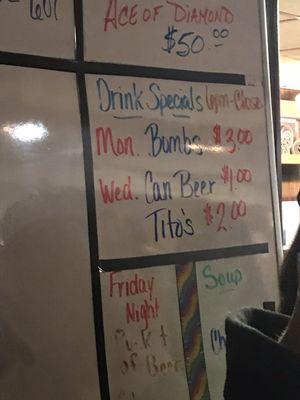 ACE OF DIAMOND
$50.00
Drink Specials 6pm-Close
Mon. Bombs $3.00
Wed. Can Beer $1.00
Tito's $2.00
Friday
Night
of Beer
Soup